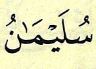 سُلَيْمَانُ